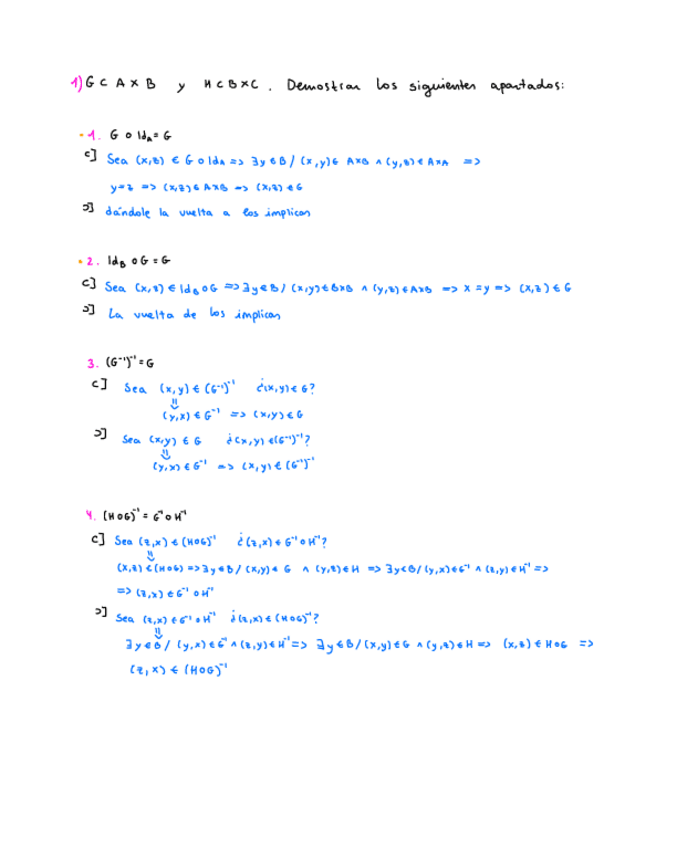 1) G ⊂ A × B y H ⊂ B×C. Demostrar los siguientes apartados:
• 1. G o Id_A = G
⊂] Sea (x,z) ∈ G o Id_A => ∃y∈B / (x,y)∈ A×B ∧ (y,z)∈ A×A =>
y=z => (x,z)∈ A×B => (x,z)∈G
⊃] dándole la vuelta a los implican
• 2. Id_B o G = G
⊂] Sea (x,z) ∈ Id_B o G => ∃y∈B / (x,y)∈B×B ∧ (y,z)∈A×B => x=y => (x,z)∈G
⊃] La vuelta de los implican
3. (G⁻¹)⁻¹ = G
⊂] Sea (x,y) ∈ (G⁻¹)⁻¹ ¿(x,y)∈ G?
⇓
(y,x) ∈ G⁻¹ => (x,y)∈ G
⊃] Sea (x,y) ∈ G ¿(x,y) ∈(G⁻¹)⁻¹?
⇓
(y,x) ∈ G⁻¹ => (x,y)∈ (G⁻¹)⁻¹
4. (H o G)⁻¹ = G⁻¹ o H⁻¹
⊂] Sea (z,x) ∈ (HoG)⁻¹ ¿(z,x) ∈ G⁻¹ o H⁻¹?
⇓
(x,z) ∈ (HoG) => ∃y∈B / (x,y)∈ G ∧ (y,z)∈H => ∃y∈B / (y,x)∈G⁻¹ ∧ (z,y)∈H⁻¹ =>
=> (z,x) ∈ G⁻¹ o H⁻¹
⊃] Sea (z,x) ∈ G⁻¹ o H⁻¹ ¿(z,x) ∈ (HoG)⁻¹?
⇓
∃y∈B / (y,x)∈G⁻¹ ∧ (z,y)∈H⁻¹ => ∃y∈B / (x,y)∈G ∧ (y,z)∈H => (x,z) ∈ HoG =>
(z,x) ∈ (HoG)⁻¹